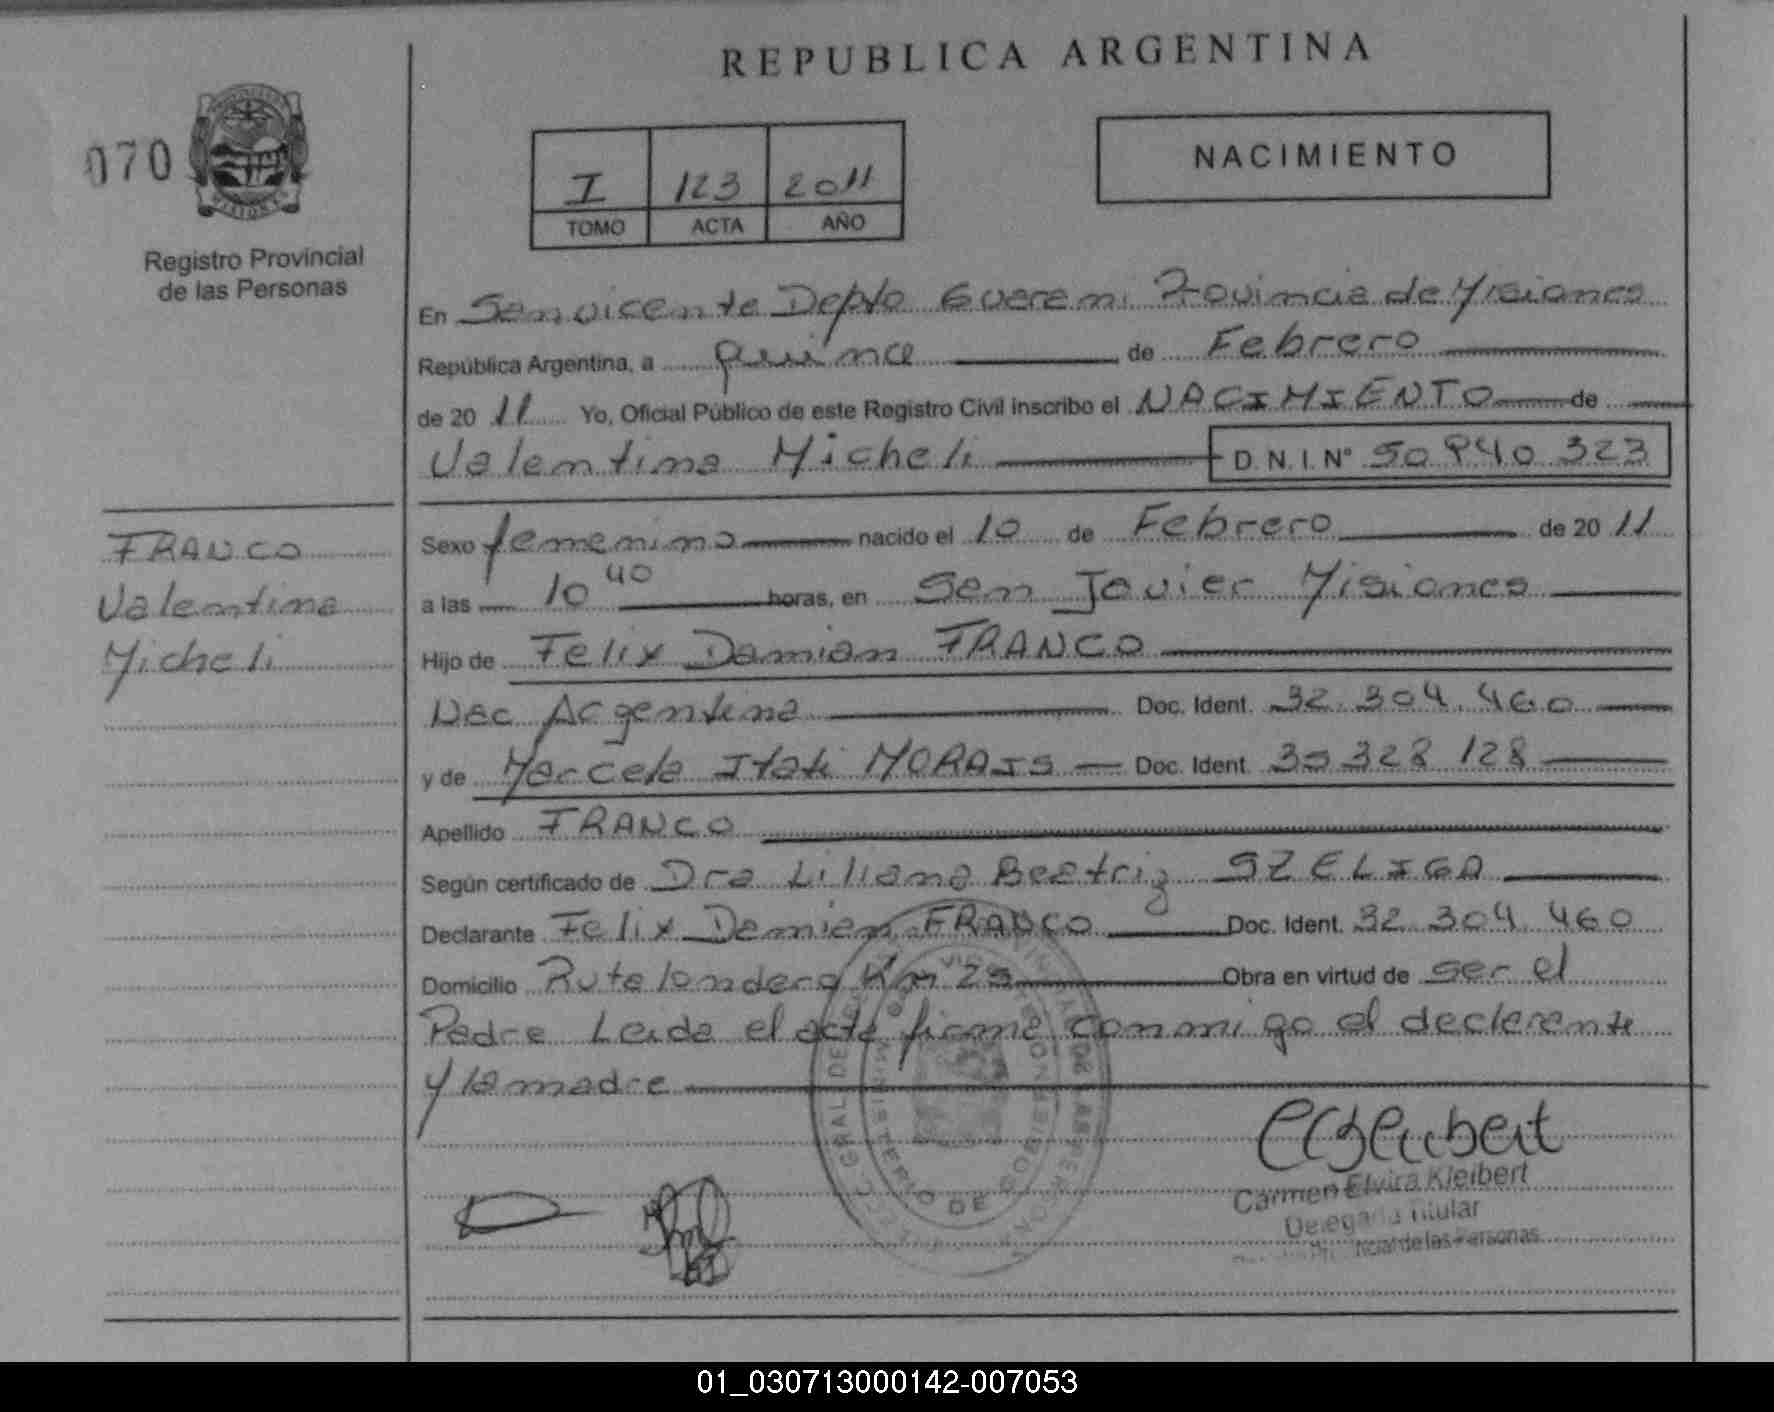 REPUBLICA ARGENTINA
070
I 123 2011
TOMO ACTA AÑO
NACIMIENTO
Registro Provincial
de las Personas
En San vicente Depto Guarani Provincia de Misiones
República Argentina, a quince de Febrero
de 2011 Yo, Oficial Público de este Registro Civil inscribo el NACIMIENTO de
Valentina Micheli D.N.I. Nº 50 940 323
FRANCO
Valentina
Micheli
Sexo femenino nacido el 10 de Febrero de 2011
a las 10 40 horas, en San Javier Misiones
Hijo de Felix Damian FRANCO
Nac Argentina Doc. Ident. 32.304.460
y de Marcela Itati MORAIS Doc. Ident. 35 328 128
Apellido FRANCO
Según certificado de Dra Liliana Beatriz SZELIGA
Declarante Felix Damian FRANCO Doc. Ident. 32 304 460
Domicilio Ruta Km 25 Obra en virtud de ser el
Padre Leida el acta firma conmigo el declarante
y la madre
MINISTERIO DE GOBIERNO
Carmen Elvira Kleibert
Delegada Titular
de las Personas
01_030713000142-007053